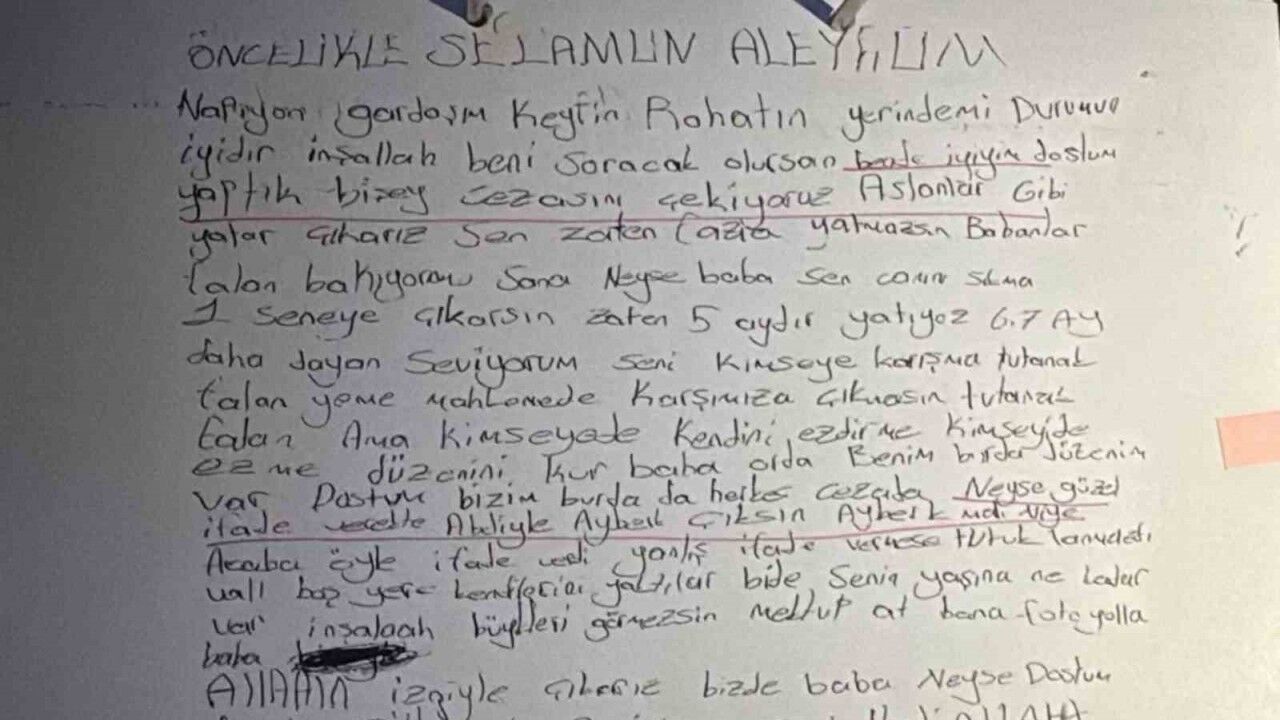 ÖNCELİKLE SELAMUN ALEYHUM
Napıyon gardaşım Keyfin Rahatın yerindemi Durumun
iyidir inşallah beni Soracak olursan bende iyiyim dostum
yaptık bizşey cezasını çekiyoruz Aslanlar Gibi
yatar çıkarız Sen zaten fazla yatmazsın Babanlar
falan bakıyorum Sana Neyse baba sen canını sıkma
1 Seneye çıkarsın zaten 5 aydır yatıyoz 6.7 AY
daha dayan Seviyorum seni Kimseye karışma tutanak
falan yeme mahkemede karşımıza çıkmasın tutanak
falan Ama Kimseyede Kendini ezdirme Kimseyide
ezme düzenini kur baba orda Benim burda düzenim
var Dostum bizim burda da herkes cezada Neyse güzel
ifade Abiliyle Ayberk Çıksın Ayberk niye
Acaba öyle ifade verdi yanlış ifade vermese tutuklanmadı
vall boş yere kendilerini yaktılar bide Senin yaşına ne kadar
var inşalaah büyükleri görmezsin mektup at bana foto yolla
baba
Allahın izniyle çıkarız bizde baba Neyse Dostum